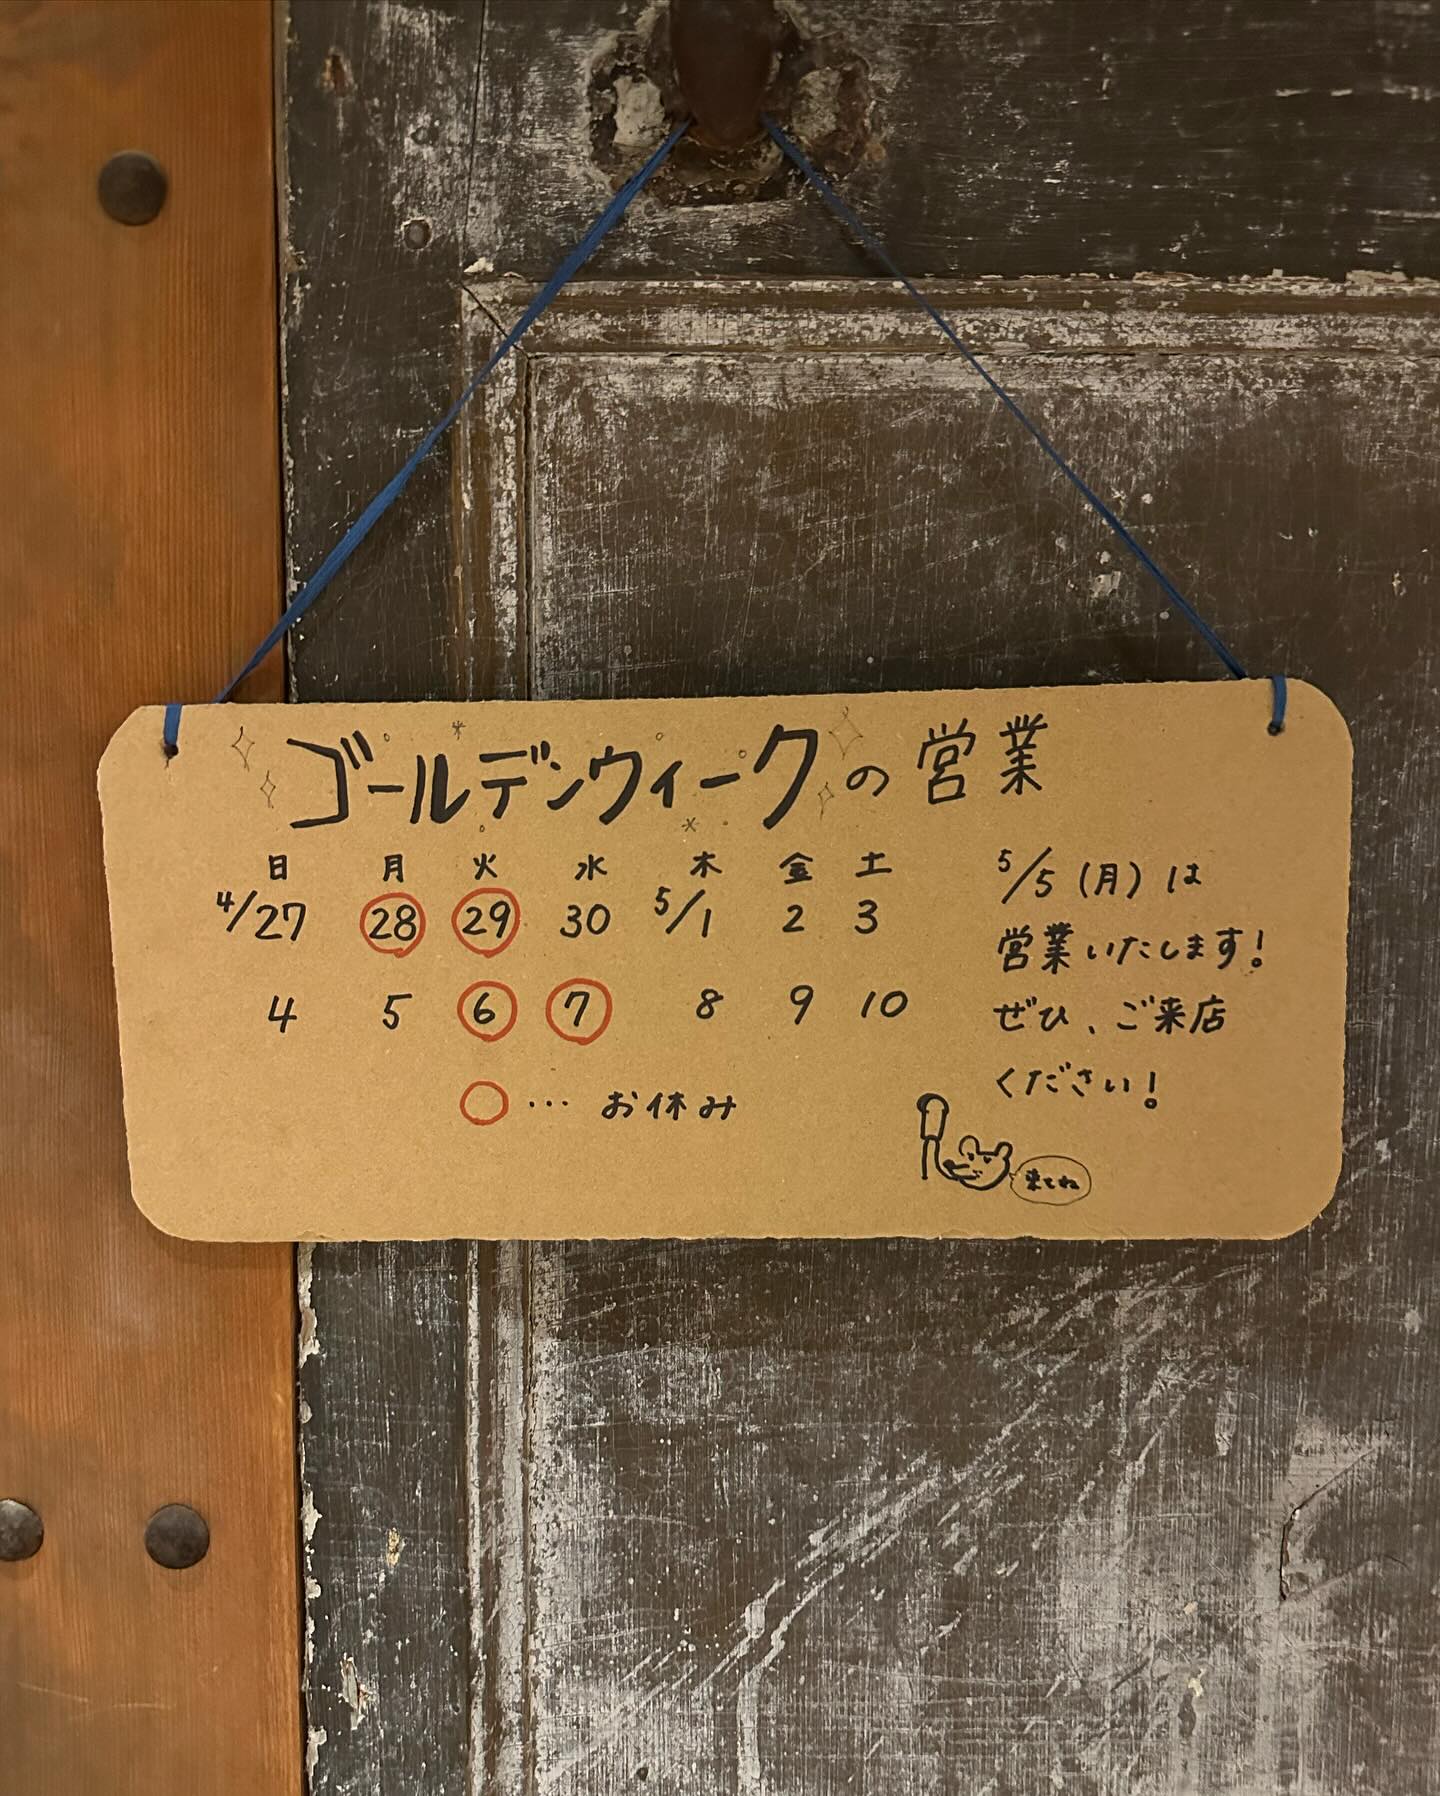 ゴールデンウィークの営業
日 月 火 水 木 金 土
4/27 28 29 30 5/1 2 3
4 5 6 7 8 9 10
○… お休み
5/5(月)は
営業いたします!
ぜひ、ご来店
ください!
来てね